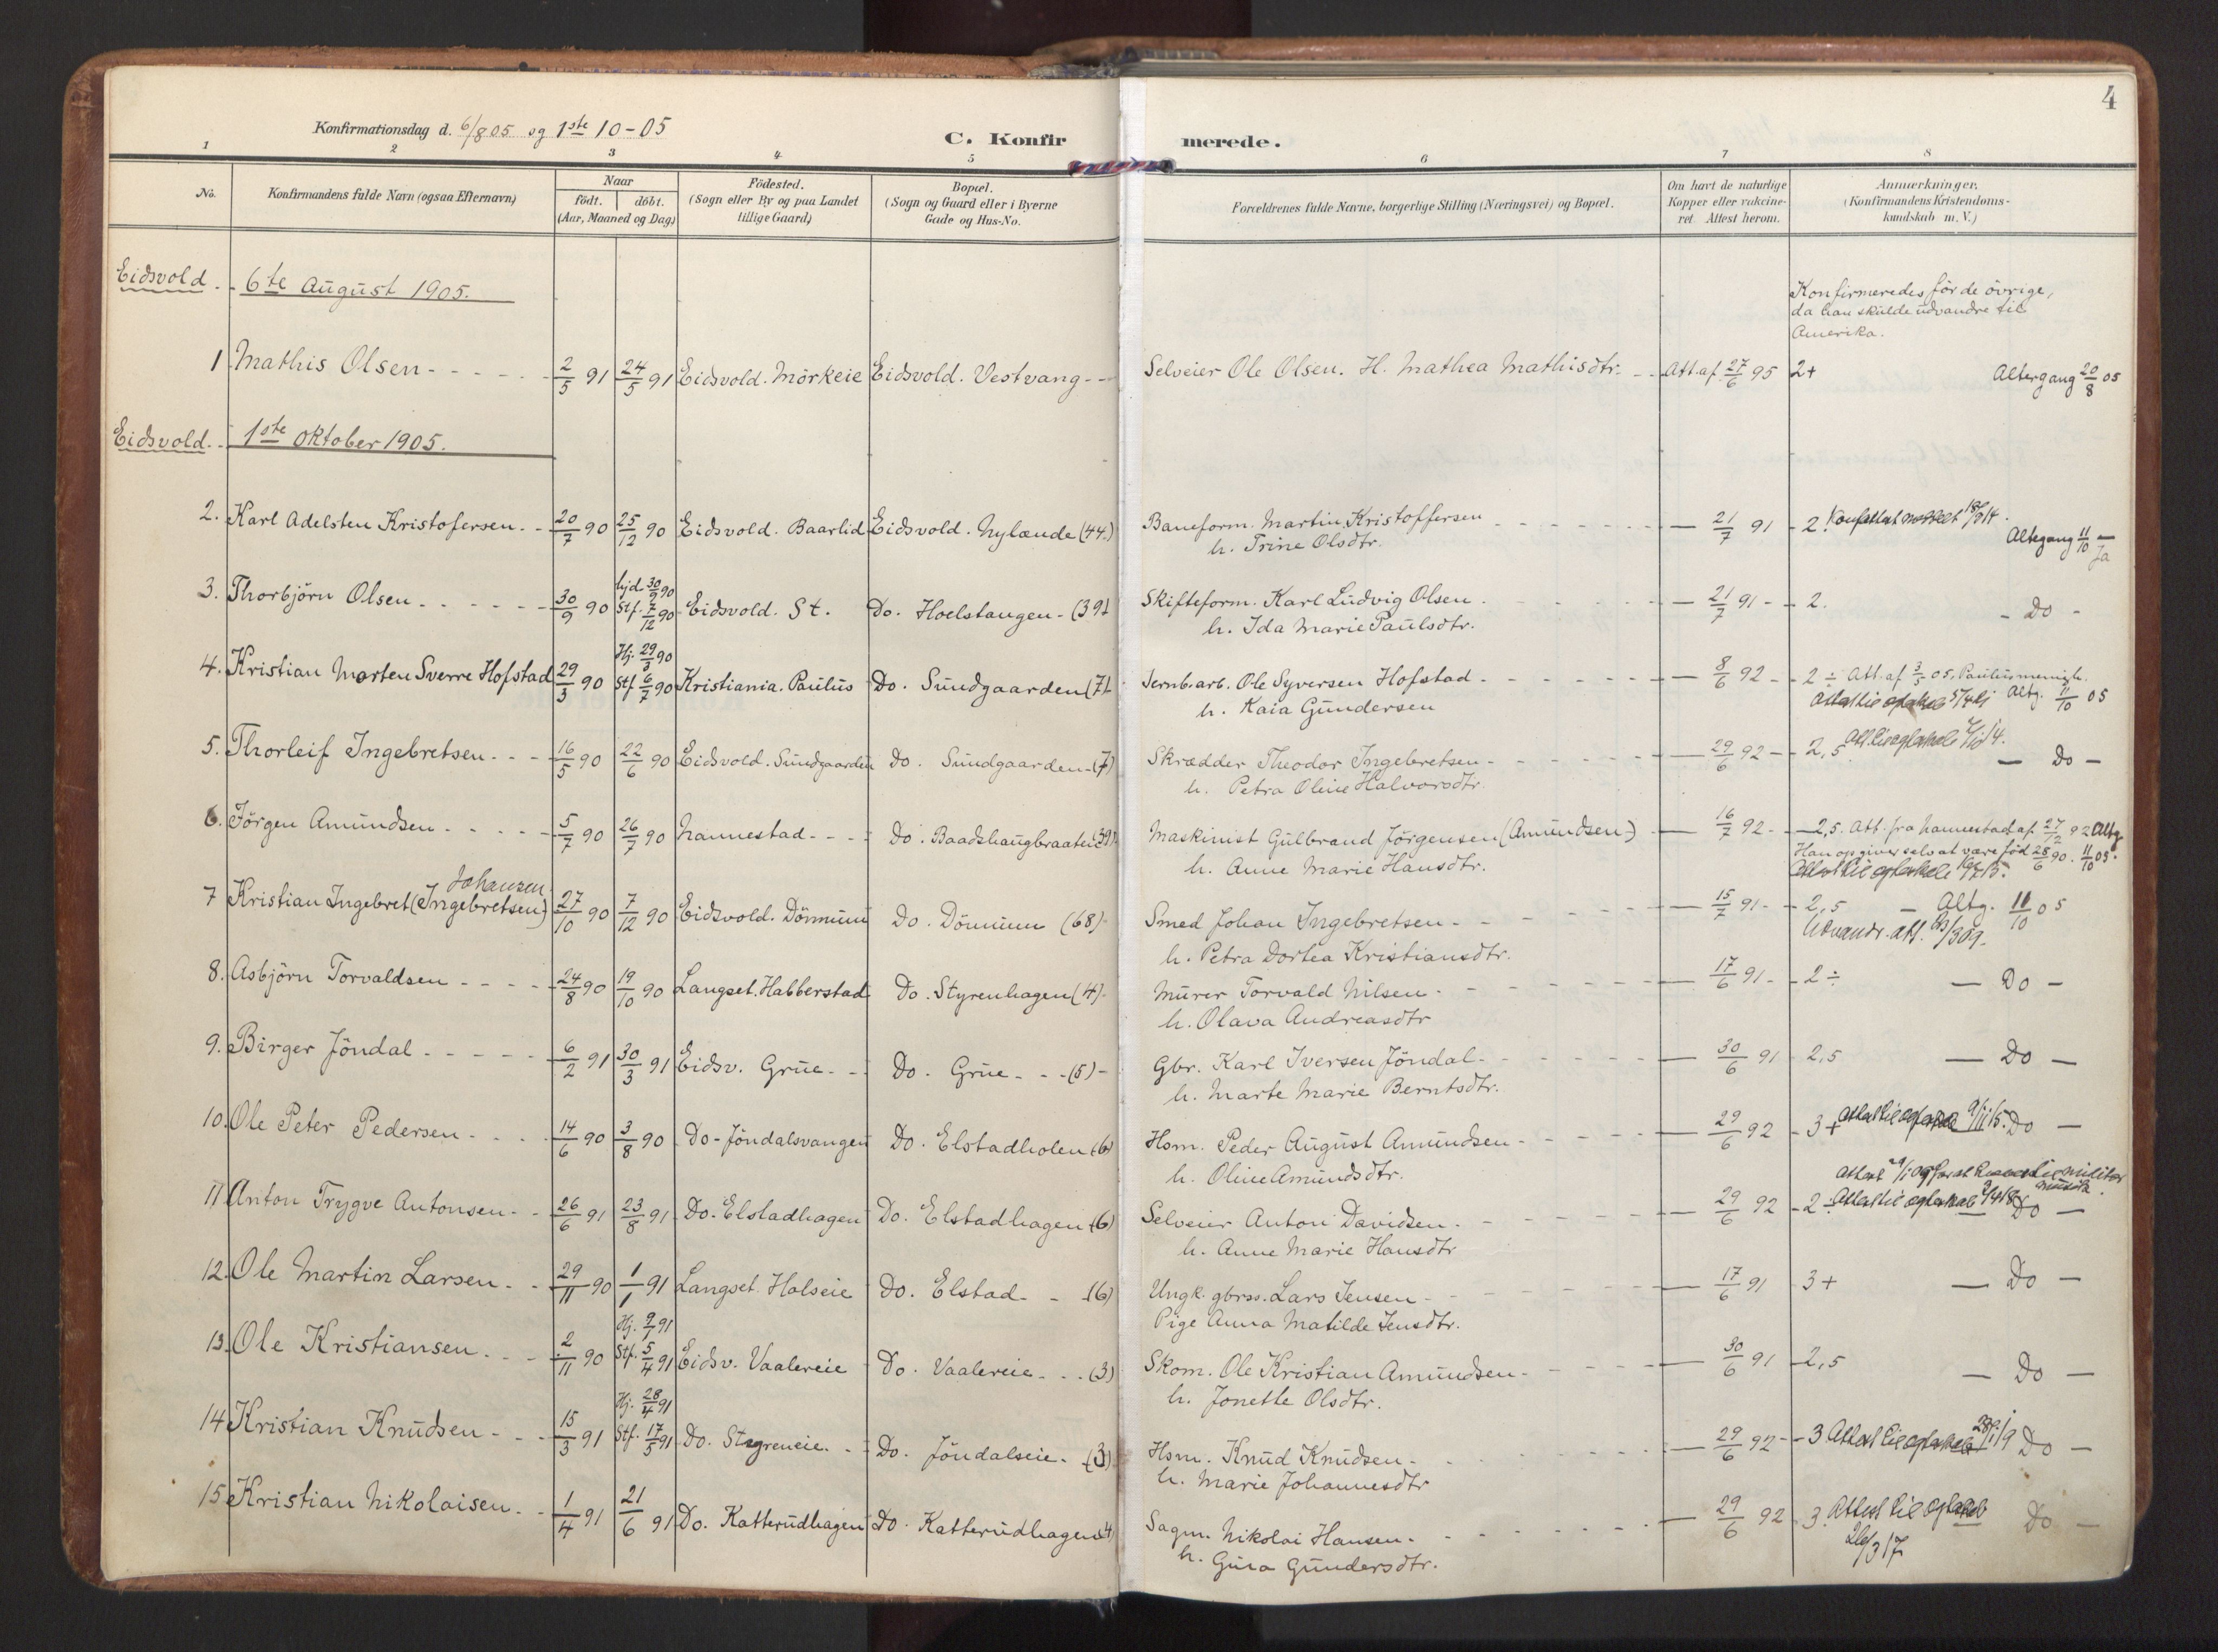 4
Konfirmationsdag d. 6/8 05 og 1ste 10-05
C. Konfirmerede.
1 2 3 4 5 6 7 8
No.
Konfirmandens fulde Navn (ogsaa Efternavn)
Naar
födt. döbt.
(Aar, Maaned og Dag)
Födested.
(Sogn eller By og paa Landet
tillige Gaard)
Bopæl.
(Sogn og Gaard eller i Byerne
Gade og Hus-No.
Forældrenes fulde Navne, borgerlige Stilling (Næringsvei) og Bopæl.
Om havt de naturlige
Kopper eller vakcine-
ret. Attest herom.
Anmærkninger.
(Konfirmandens Kristendoms-
kundskab m. V.)
Eidsvold. 6te August 1905.
Konfirmeredes för de övrige,
da han skulde udvandre til
Amerika.
1 Mathis Olsen 2/5 91 24/5 91 Eidsvold. Mörkeie Eidsvold. Vestvang Selveier Ole Olsen. H. Mathea Mathisdtr. Att. af 27/6 95 2+ Altergang 20/8 05
Eidsvold. 1ste Oktober 1905.
2. Karl Adelsten Kristofersen 20/7 90 25/12 90 Eidsvold. Baarlid Eidsvold. Nylænde (44.) Baneform. Martin Kristoffersen 21/7 91 2. Altegang 11/10 Ja
h. Trine Olsdtr.
3. Thorbjörn Olsen 30/9 90 hjd 30/9 90 Stf. 7/12 90 Eidsvold. St. Do. Hoelstangen (39) Skifteform. Karl Ludvig Olsen 21/7 91 2. Do
h. Ida Marie Paulsdtr.
4. Kristian Marten Sverre Hofstad 29/3 90 Hj. 29/3 90 Stf 6/7 90 Kristiania. Paulus Do. Sundgaarden (7) Jernb. arb. Ole Syversen Hofstad 8/6 92 2 ÷ Att. af 3/5 05, Paulus menigh.
h. Kaia Gundersen Altg. 11/10 05
5. Thorleif Ingebretsen 16/5 90 22/6 90 Eidsvold. Sundgaarden Do. Sundgaarden (7) Skrædder Theodor Ingebretsen 29/6 92 2,5 Do
h. Petra Oline Halvorsdtr.
6. Jörgen Amundsen 5/7 90 26/7 90 Nannestad Do. Baadshaugbraaten (39) Maskinist Gulbrand Jörgensen (Amundsen) 16/7 92 2,5. Att. fra Nannestad af 27/12 92 Altg
h. Anne Marie Hansdtr. Han opgiver selv at være föd 28/6 90. 11/10 05.
Johanzen
7 Kristian Ingebret (Ingebretsen) 27/10 90 7/12 90 Eidsvold. Dönnum Do. Dönnum (68) Smed Johan Ingebretsen 15/7 91 2,5 Altg. 11/10 05
h. Petra Dortea Kristiansdtr. Udvandr. att.
8. Asbjörn Torvaldsen 24/8 90 19/10 90 Langset. Habberstad Do. Styrenhagen (4) Murer Torvald Nilsen 17/6 91 2 ÷ Do
h. Olava Andreasdtr
9. Birger Jöndal 6/2 91 30/3 91 Eidsv. Grue Do. Grue (5) Gbr. Karl Iversen Jöndal 30/6 91 2,5 Do
h. Marte Marie Berntsdtr.
10. Ole Peter Pedersen 14/6 90 3/8 90 Do Jöndalsvangen Do. Elstadholen (6) Hsm. Peder August Amundsen 29/6 92 3+ Do
h. Oline Amundsdtr.
11 Anton Trygve Antonsen 26/6 91 23/8 91 Do. Elstadhagen Do. Elstadhagen (6) Selveier Anton Davidsen 29/6 92 2 ÷ Do
h. Anne Marie Hansdtr
12. Ole Martin Larsen 29/11 90 1/1 91 Langset Holseie Do. Elstad (6) Ungk. gbrss. Lars Jensen 17/6 91 3+ Do
Pige Anna Matilde Jensdtr.
13. Ole Kristiansen 2/11 90 Hj. 9/1 91 Stf. 5/4 91 Eidsv. Vaalereie Do. Vaalereie (3) Skom. Ole Kristian Amundsen 30/6 91 2,5 Do
h. Jonette Olsdtr.
14 Kristian Knudsen 15/3 91 Hj. 28/4 91 Stf. 17/5 91 Do. Styreneie Do. Jöndalseie (3) Hsm. Knud Knudsen 29/6 92 3 Do
h. Marie Johannesdtr
15 Kristian Nikolaisen 1/4 91 21/6 91 Do. Katterudhagen Do. Katterudhagen 4) Sagm. Nikolai Hansen 29/6 92 3. Attest til Do
h. Gura Gundersdtr. 26/3 17